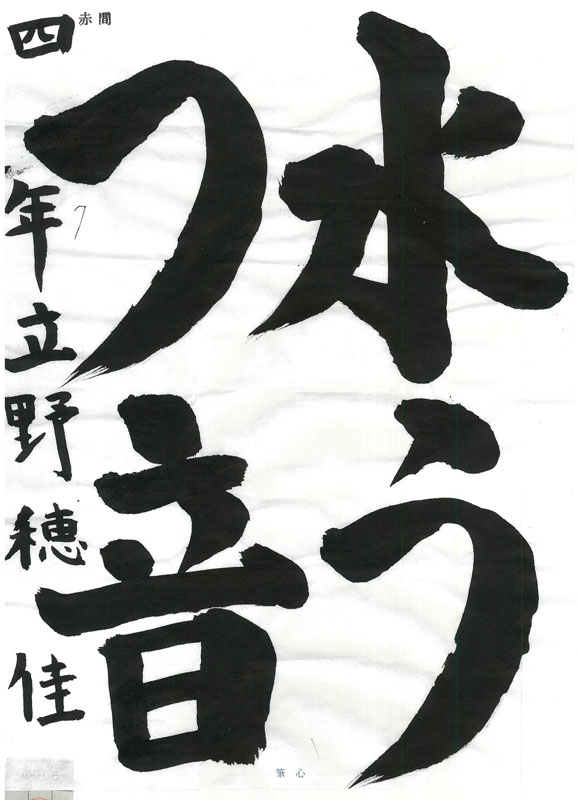 赤間
水う
つ音
四年立野穂佳
筆心